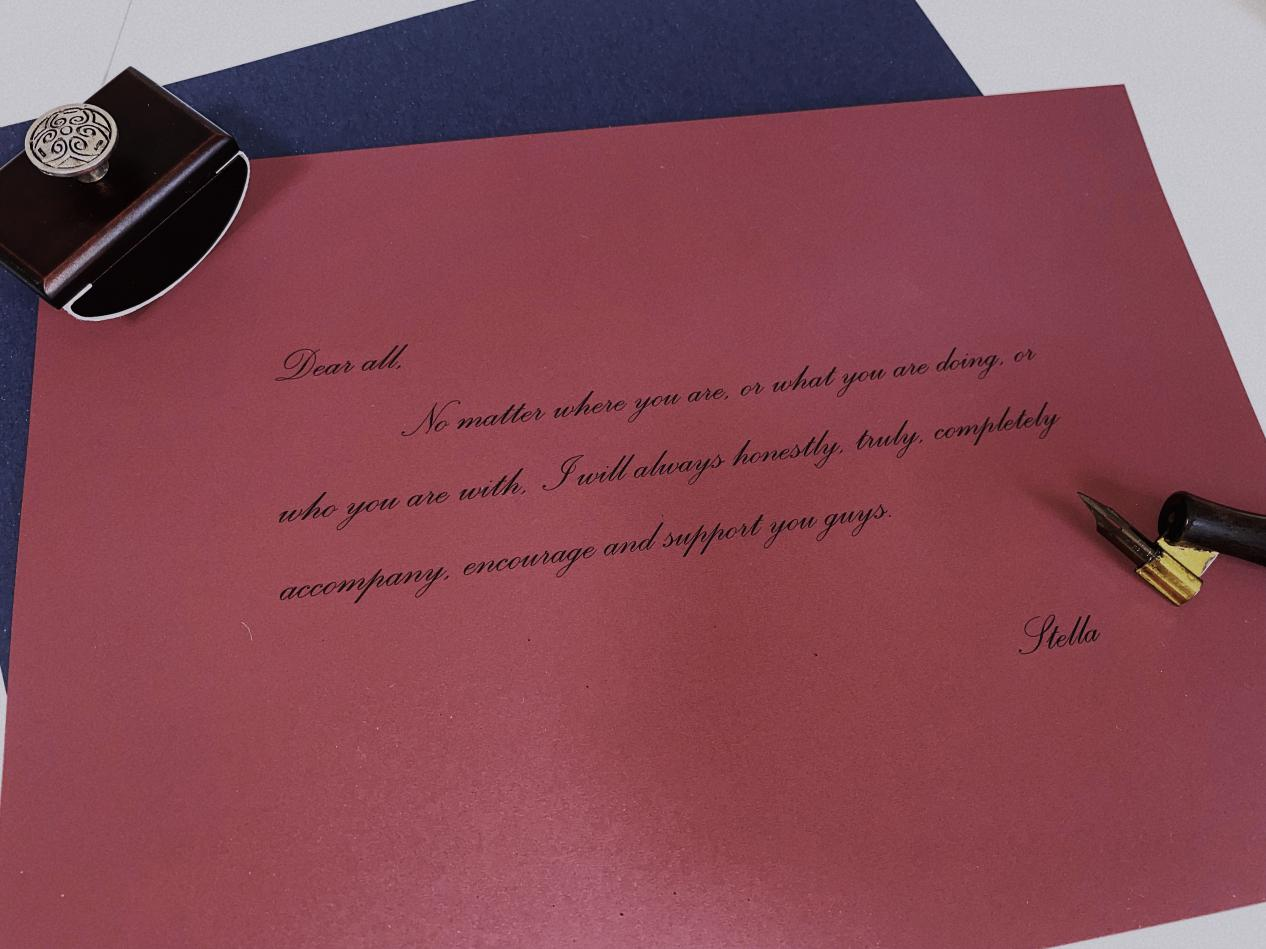 Dear all,
No matter where you are, or what you are doing, or
who you are with, I will always honestly, truly, completely
accompany, encourage and support you guys.
Stella